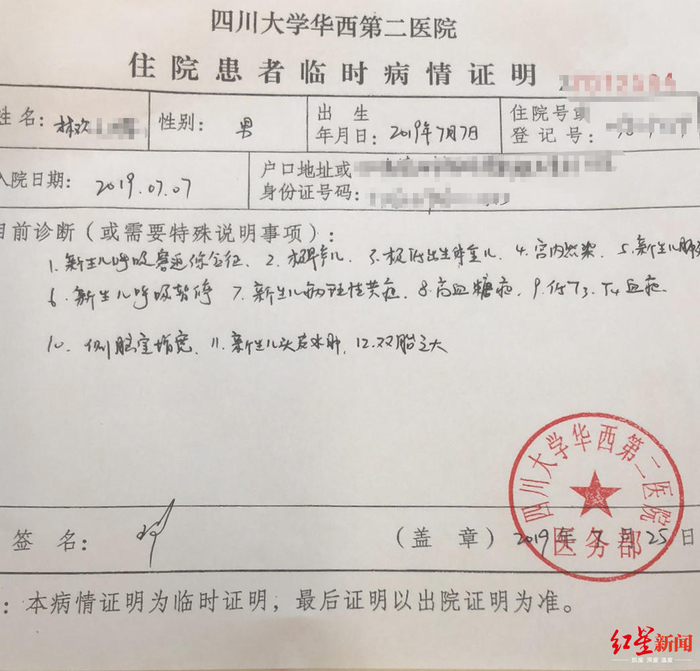 四川大学华西第二医院
住院患者临时病情证明
姓名： 林欢 性别： 男 出生年月日： 2019年7月7日 住院号或登记号：
入院日期： 2019.07.07 户口地址或身份证号码：
目前诊断（或需要特殊说明事项）：
1. 新生儿呼吸窘迫综合征 2. 极早产儿 3. 极低出生体重儿 4. 宫内感染 5. 新生儿肺
6. 新生儿呼吸暂停 7. 新生儿病理性黄疸 8. 高血糖症 9. 低T3、T4血症
10. 侧脑室增宽 11. 新生儿头皮水肿 12. 双胎之大
四川大学华西第二医院
医务部
签名： （盖章） 2019年7月25日
：本病情证明为临时证明，最后证明以出院证明为准。
红星新闻